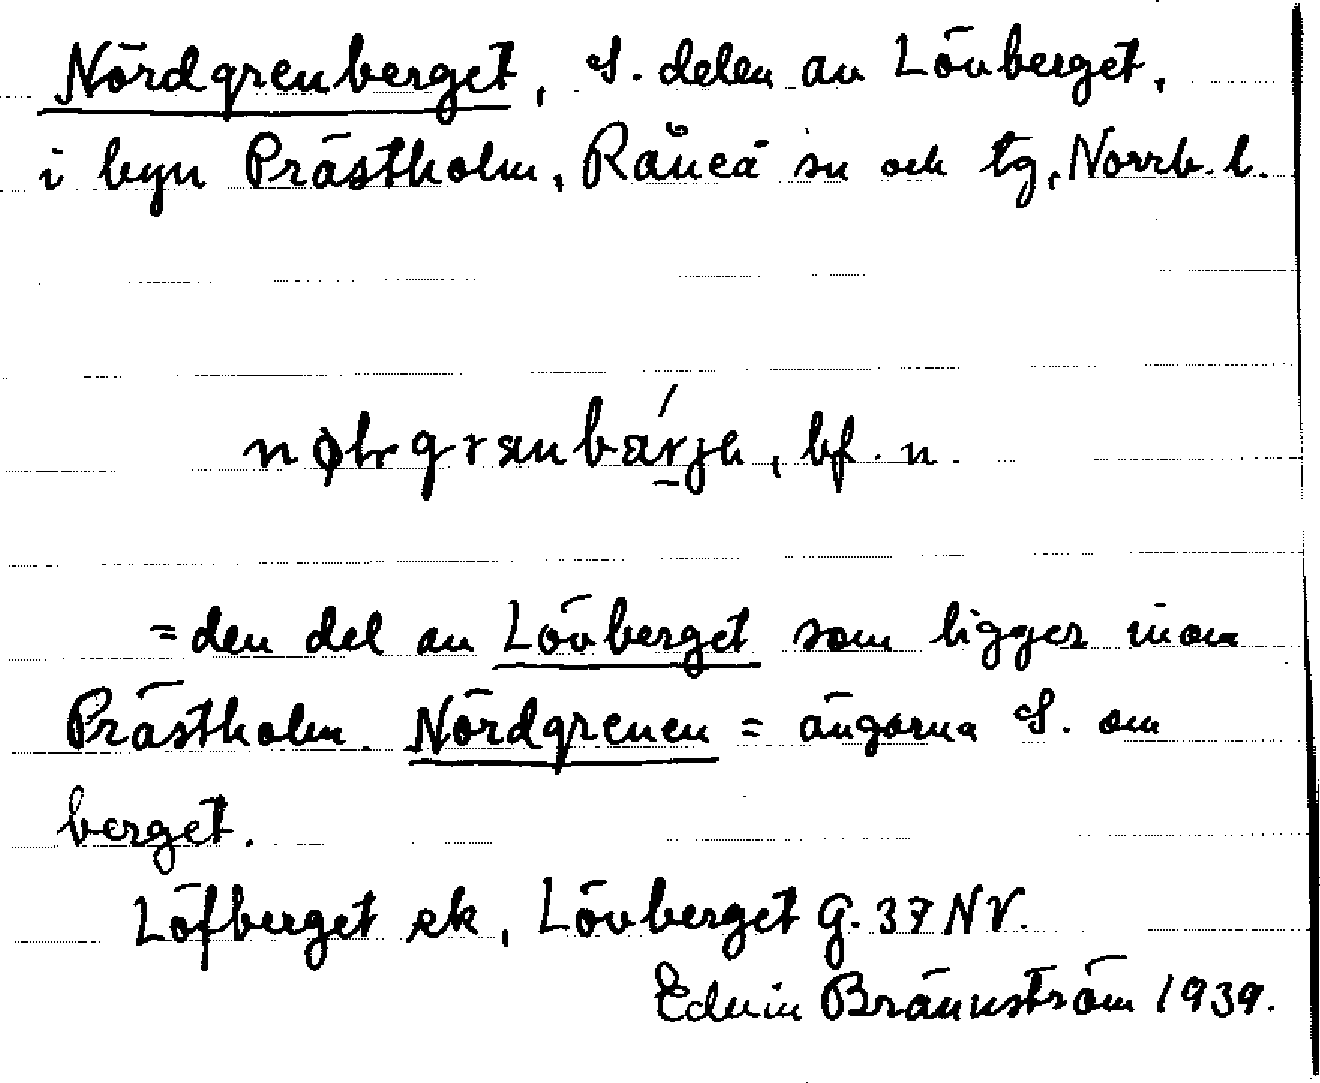 Nördgrenberget, S. delen av Lövberget,
i byn Prästholm, Råneå sn och tg, Norrb. l.
bf. n.
= den del av Lövberget som ligger inom
Prästholm. Nördgrenen = ängarna S. om
berget.
Löfberget ek, Lövberget G. 37 NV.
Edvin Brännström 1939.